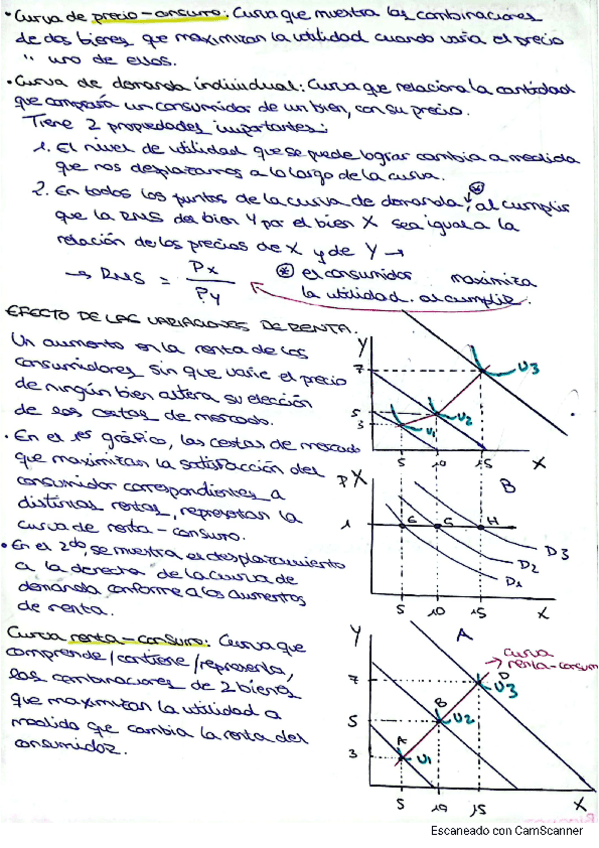 · Curva de precio-consumo: Curva que muestra las combinaciones
de dos bienes que maximizan la utilidad cuando varía el precio
" uno de ellos.
· Curva de demanda individual: Curva que relaciona la cantidad
que compraría un consumidor de un bien, con su precio.
Tiene 2 propiedades importantes:
1. El nivel de utilidad que se puede lograr cambia a medida
que nos desplazamos a lo largo de la curva.
2. En todos los puntos de la curva de demanda, * al cumplir
que la RMS del bien Y por el bien X sea igual a la
relación de los precios de X y de Y →
→ RMS = Px / Py
* el consumidor maximiza
la utilidad al cumplir.
EFECTO DE LAS VARIACIONES DE RENTA.
Un aumento en la renta de los
consumidores sin que varíe el precio
de ningún bien altera su elección
de las cestas de mercado.
· En el 1er gráfico, las cestas de mercado
que maximizan la satisfacción del
consumidor correspondientes a
distintas rentas, representan la
curva de renta-consumo.
· En el 2do, se muestra el desplazamiento
a la derecha de la curva de
demanda conforme a los aumentos
de renta.
Curva renta-consumo: Curva que
comprende/contiene/representa,
las combinaciones de 2 bienes
que maximizan la utilidad a
medida que cambia la renta del
consumidor.
Y
7
5
3
U1
U2
U3
5 10 15 X
PX
B
1
E G H
D3
D2
D1
5 10 15 X
Y
A
curva
→ renta-consum
7
5
3
A
B
D
U1
U2
U3
5 10 15 X
Escaneado con CamScanner